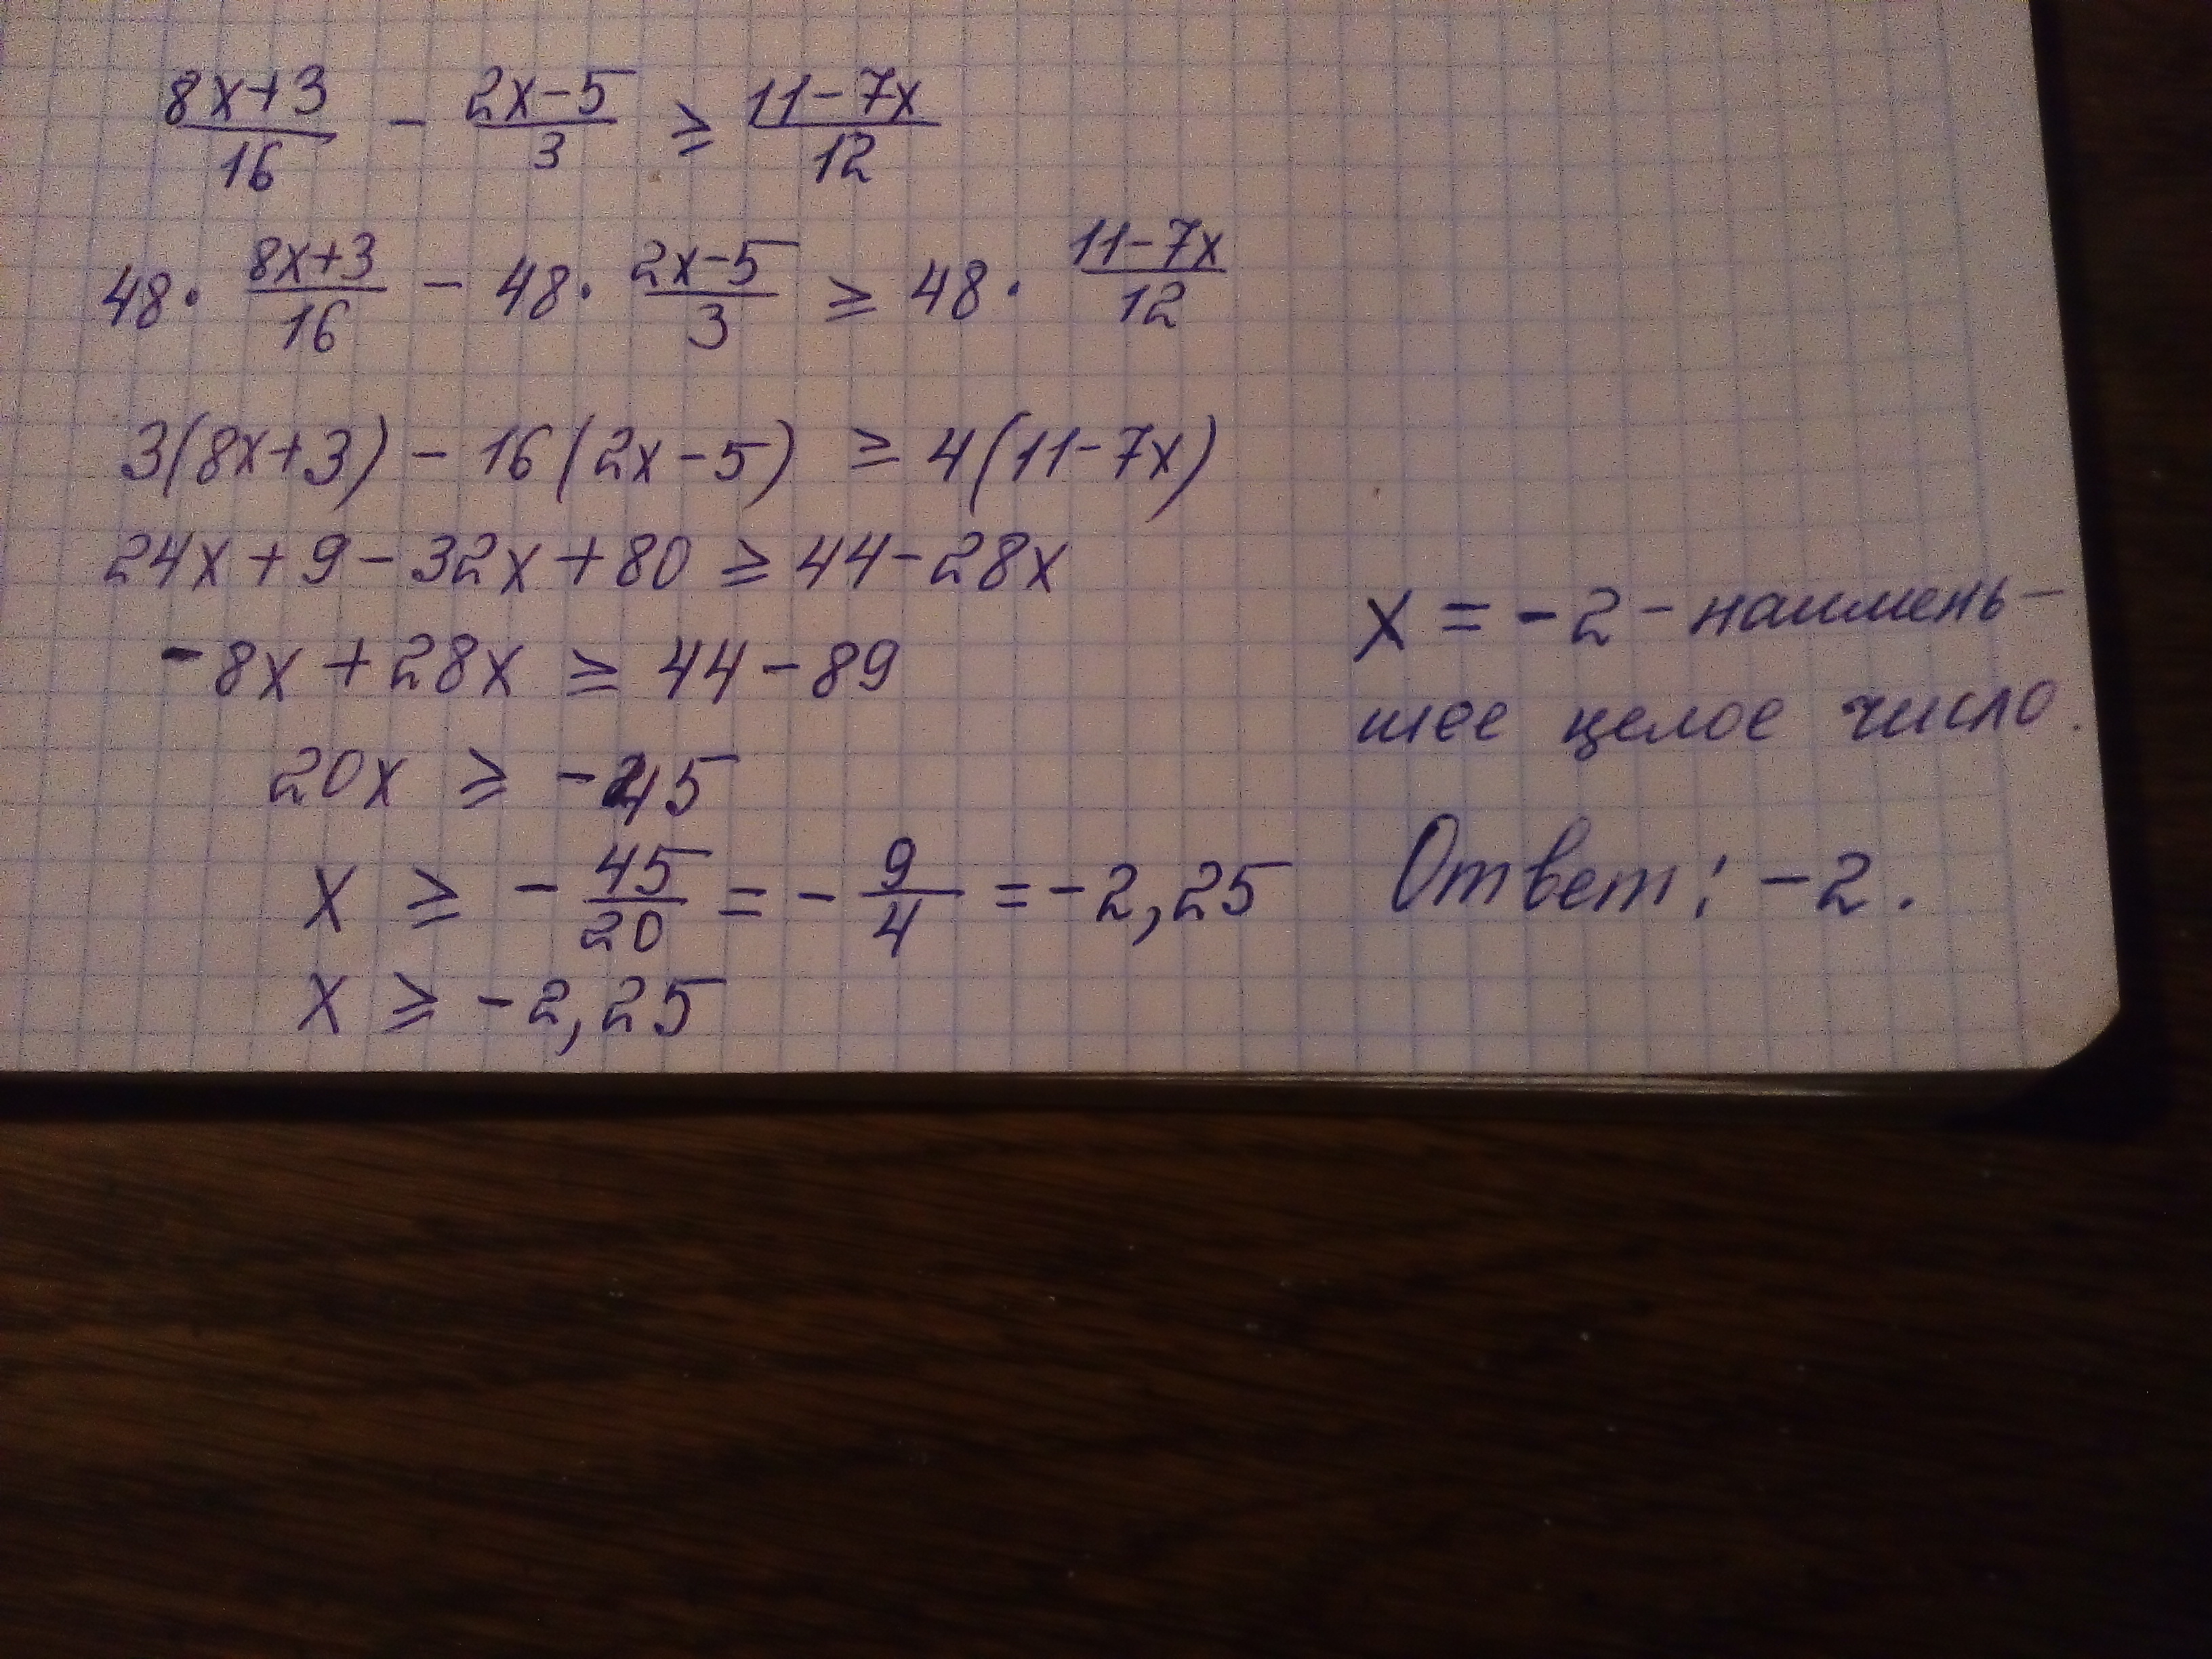 (8x+3)/16 - (2x-5)/3 ≥ (11-7x)/12
48 · (8x+3)/16 - 48 · (2x-5)/3 ≥ 48 · (11-7x)/12
3(8x+3) - 16(2x-5) ≥ 4(11-7x)
24x + 9 - 32x + 80 ≥ 44 - 28x
-8x + 28x ≥ 44 - 89
20x ≥ -45
x ≥ - 45/20 = - 9/4 = -2,25
x ≥ -2,25
x = -2 - наимень-
шее целое число.
Ответ: -2.